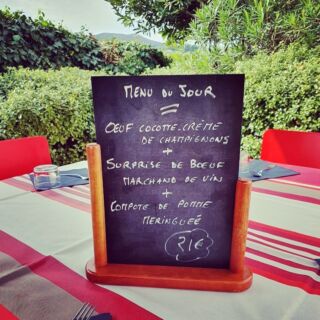 MENU DU JOUR
=
OEUF COCOTTE-CRÈME
DE CHAMPIGNONS
+
SURPRISE DE BOEUF
MARCHAND DE VIN
+
COMPOTE DE POMME
MERINGUEÉ
21€